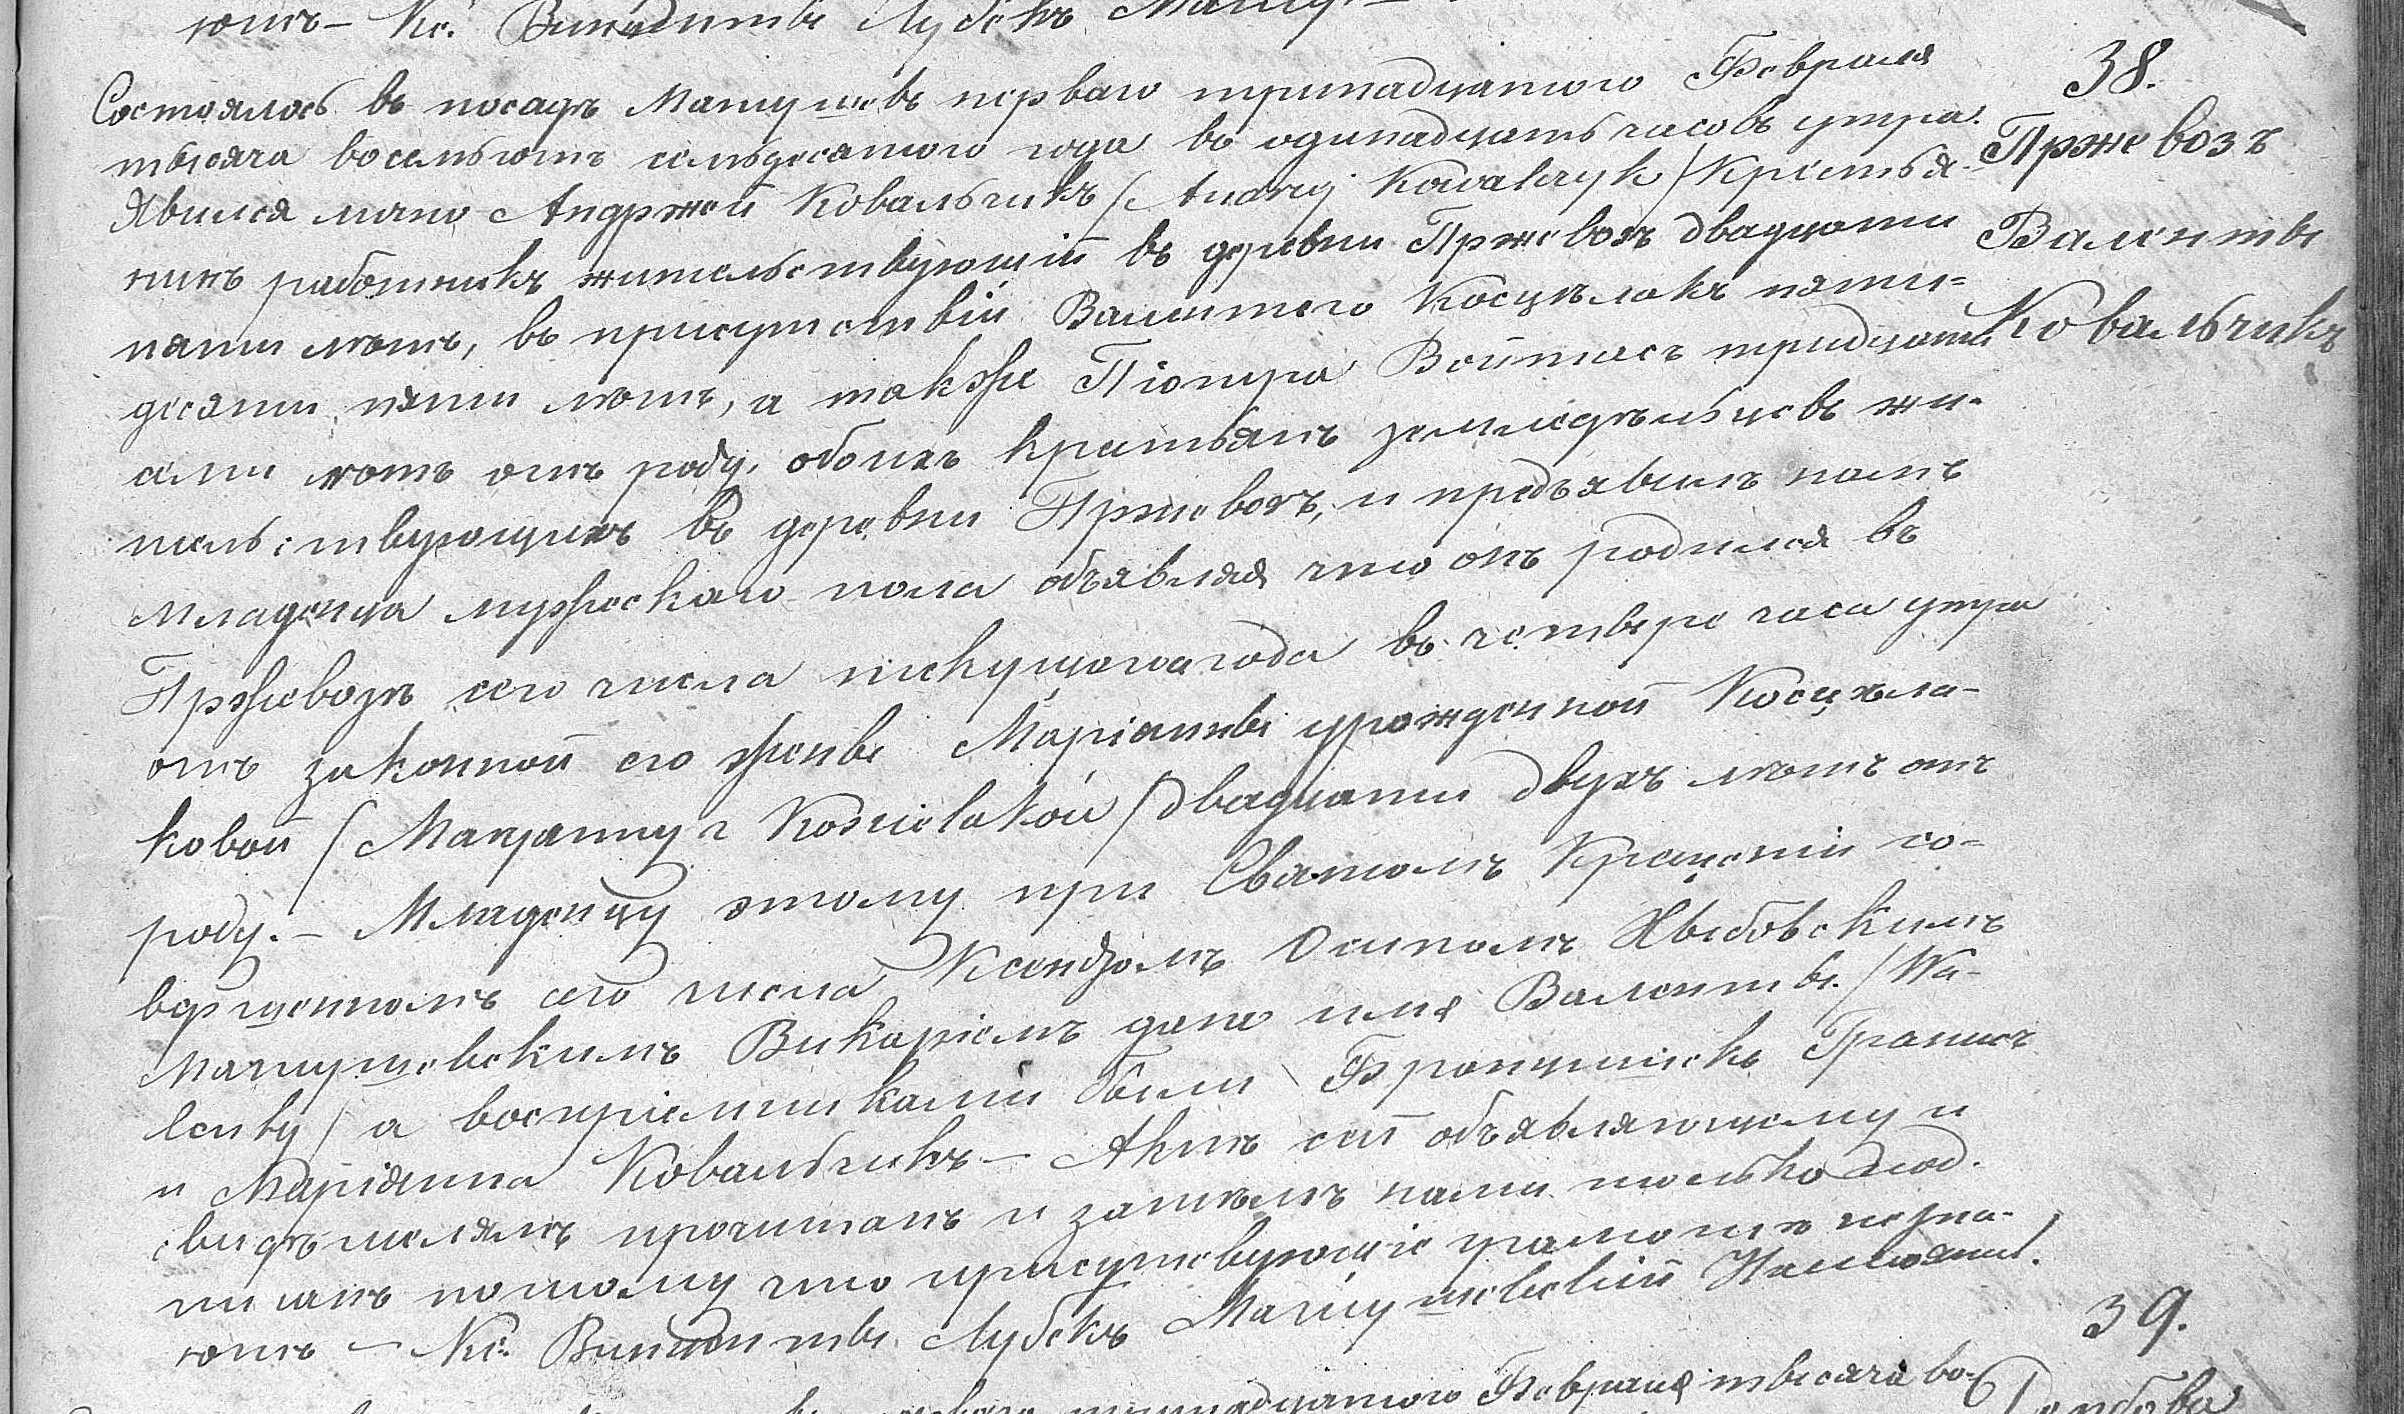 ютъ – Кс. Викентiы Лубекъ
38.
Состоялось въ посадѣ Мацѣовъ перваго тринадцатого Февраля
тысяча восемьсотъ семьдесятого года въ одинадцать часовъ утра.
Пржевозъ
Явился лично Андржей Ковальчикъ / Andrzej Kowalczyk / Крестья-
нинъ работникъ жительствующiй въ деревни Пржевозъ двадцати
Валенты
пяти лѣтъ, въ присутствiи Валентего Косцѣлакъ пяти=
Ковальчикъ
десяти пяти лѣтъ, а также Пiотра Войтасъ тридцати
сѣми лѣтъ отъ роду, обоихъ крестьянъ земледѣльцевъ жи-
тельствующихъ въ деревни Пржевозъ, и предъявилъ намъ
младенца мужескаго пола объявляя что онъ родился въ
Пржевозѣ сего числа текущаго года въ четверо часа утра
отъ законной его жены Марiанны урожденной Косцѣла-
ковой / Maryanny z Kościelaków / двадцати двухъ лѣтъ отъ
роду. – Младенцу этому при Святомъ Крещенiи со-
вершенномъ сего числа Ксендзомъ Осипомъ
Викарiемъ дано имя Валенты / Wa-
lenty / а воспрiемниками были Францишекъ
и Марiанна Ковальчикъ – Актъ сей объявляющему и
свидѣтелямъ прочитанъ и затѣмъ нами только под.
писанъ потому что присутствующiе грамотѣ незна-
ютъ – Кс. Лубекъ
39.
тринадцатого Февраля тысяча во-